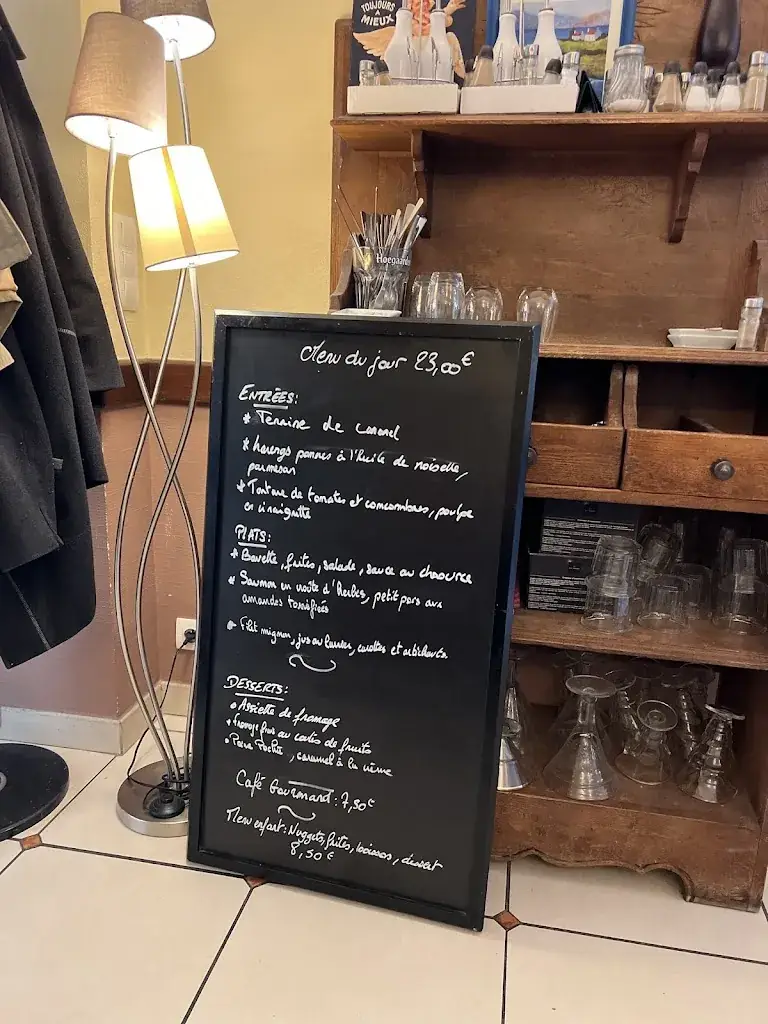 TOUJOURS
À
MIEUX
Hoegaarden
Menu du jour 23,00€
ENTRÉES:
* Terrine de canard
* harengs pommes à l'huile de noisette,
parmesan
* Tartare de tomates et concombres, poulpe
en vinaigrette
PLATS:
* Bavette, frites, salade, sauce au chaource
* Saumon en croûte d'herbes, petit pois aux
amandes torréfiées
* Filet mignon, jus au , carottes et artichauts
DESSERTS:
* Assiette de fromage
* Fromage frais au coulis de fruits
* Poire Pochée, caramel à la crème
Café Gourmand: 7,50€
Menu enfant: Nuggets, frites, boisson, dessert
8,50€